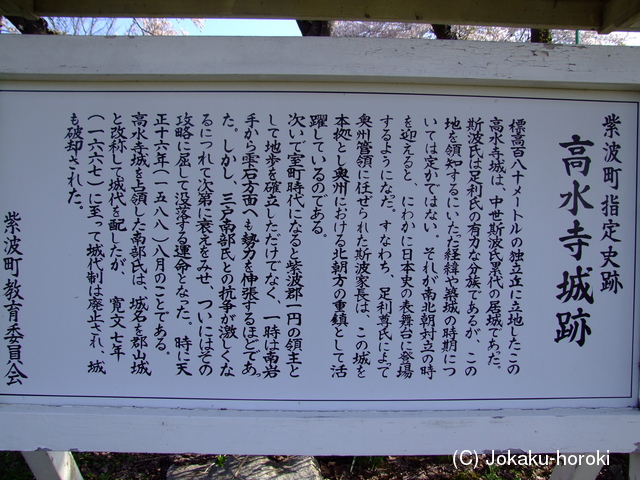 紫波町指定史跡
高水寺城跡
標高百八十メートルの独立丘に立地したこの
高水寺城は、中世斯波氏累代の居城であった。
斯波氏は足利氏の有力な分族であるが、この
地を領知するにいたった経緯や築城の時期につ
いては定かではない。それが南北朝対立の時
を迎えると、にわかに日本史の表舞台に登場
するようになった。すなわち、足利尊氏によって
奥州管領に任ぜられた斯波家長は、この城を
本拠とし奥州における北朝方の重鎮として活
躍しているのである。
次いで室町時代になると紫波郡一円の領主と
して地歩を確立しただけでなく、一時は南岩
手から雫石方面へも勢力を伸張するほどであっ
た。しかし、三戸南部氏との抗争が激しくな
るにつれて次第に衰えをみせ、ついにはその
攻略に屈して没落する運命となった。時に天
正十六年(一五八八)八月のことである。
高水寺城を占領した南部氏は、城名を郡山城
と改称して城代を配したが、寛文七年
(一六六七)に至って城代制は廃止され、城
も破却された。
紫波町教育委員会
(C) Jokaku-horoki